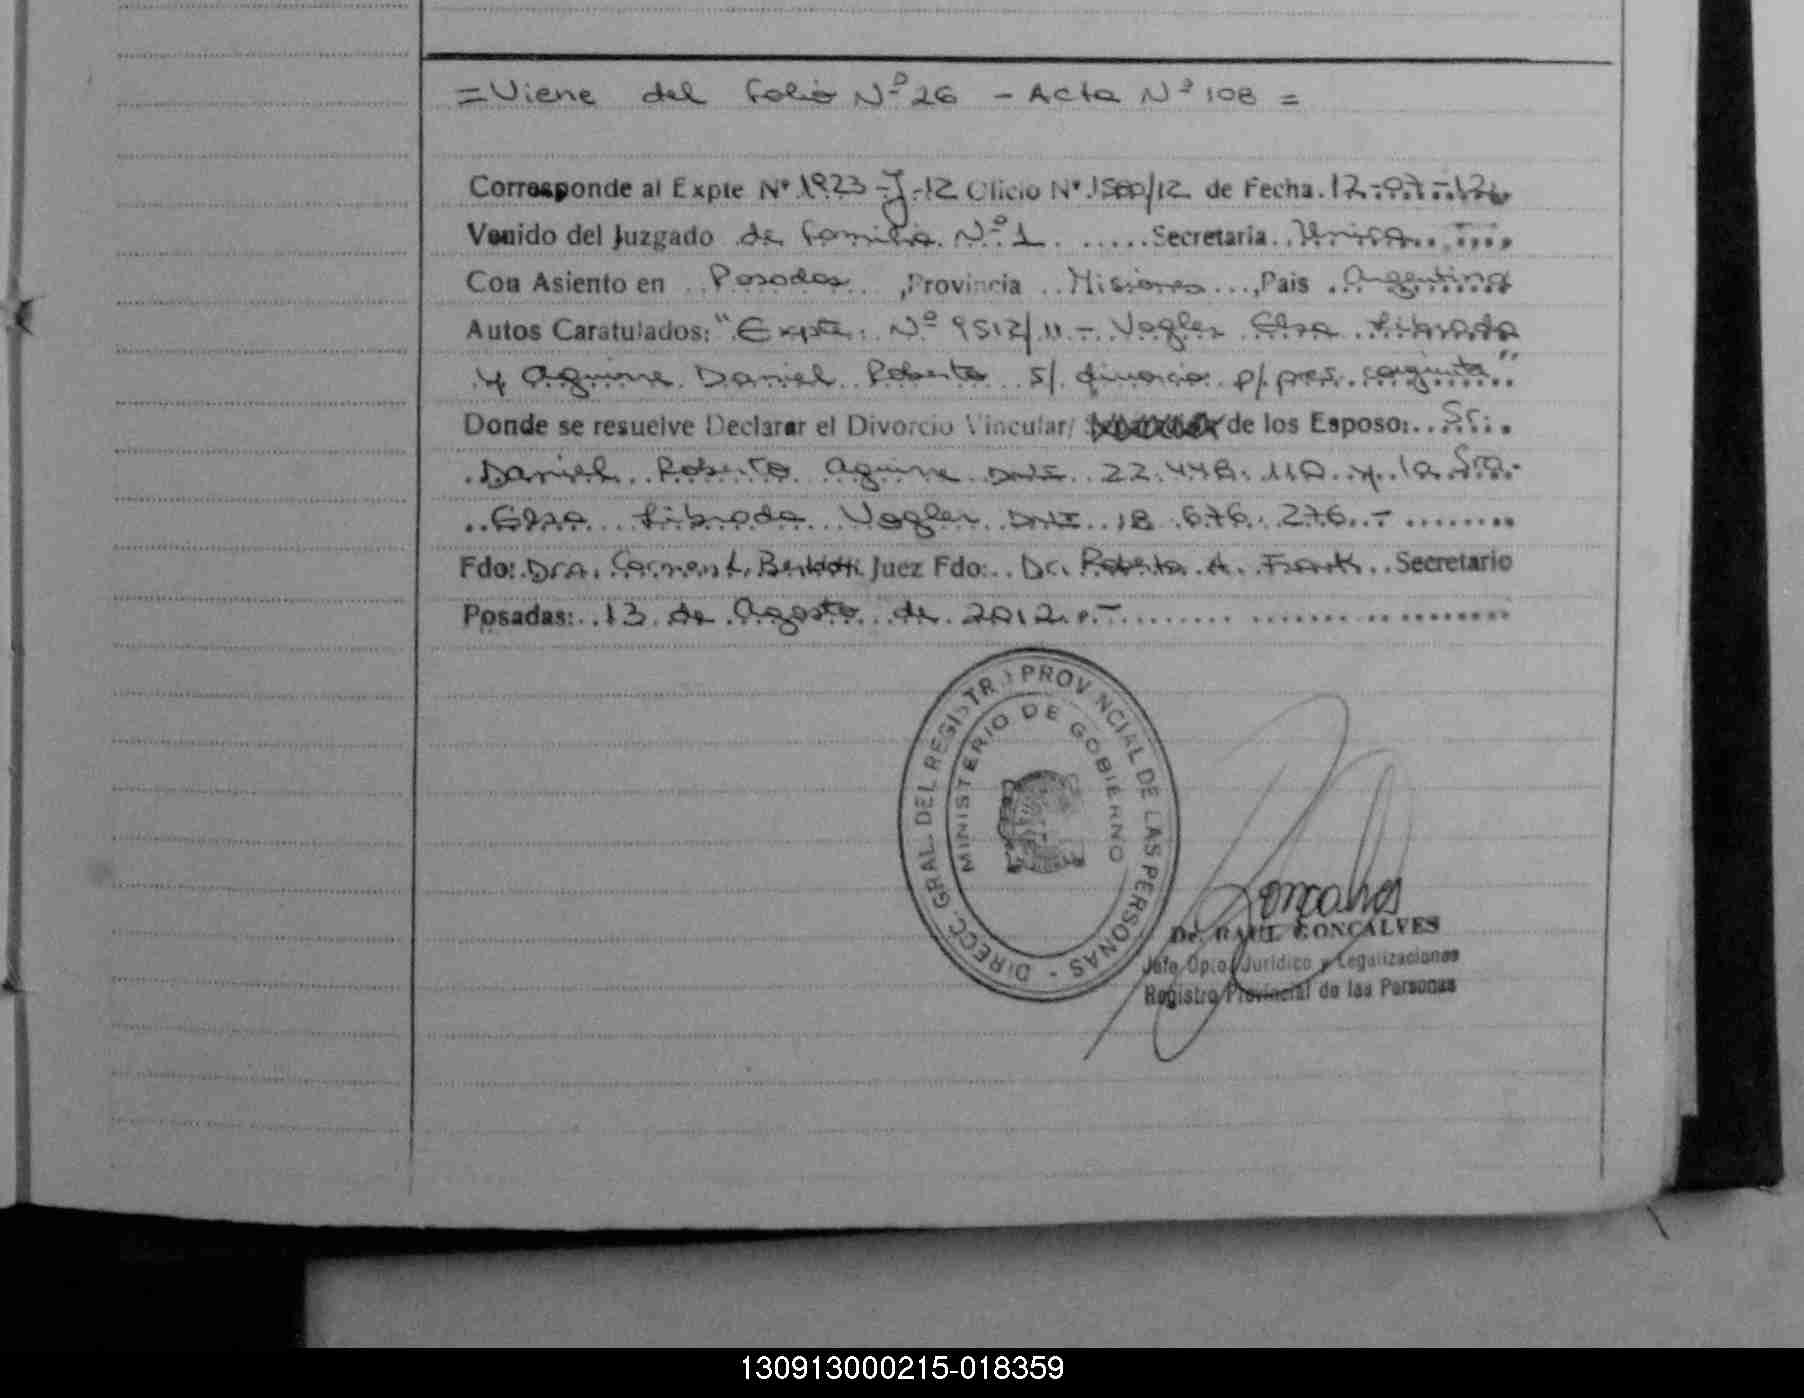 =Viene del folio Nº 26 - Acta Nº 108 =
Corresponde al Expte Nº 1923-J-12 Oficio Nº 1580/12 de Fecha. 12-07-12
Venido del Juzgado de familia Nº 1 Secretaria Unica
Con Asiento en Posadas, Provincia Misiones, Pais Argentina
Autos Caratulados: "Expte. Nº 9512/11 - Vogler Elsa Librada
y Aguirre Daniel Roberto s/ divorcio p/ pres. conjunta"
Donde se resuelve Declarar el Divorcio Vincular/ de los Esposo: Sr.
Daniel Roberto Aguirre DNI 22.448.110 y la Sra.
Elsa Librada Vogler DNI 18.676.276.-
Fdo: Dra. Carmen L. Juez Fdo: Dr. Roberto A. Frank Secretario
Posadas: 13 de Agosto de 2012.-
DIRECC. GRAL. DEL REGISTRO PROVINCIAL DE LAS PERSONAS -
MINISTERIO DE GOBIERNO
Goncalves
Dr. RAUL GONCALVES
Jefe Dpto. Jurídico y Legalizaciones
Registro Provincial de las Personas
130913000215-018359